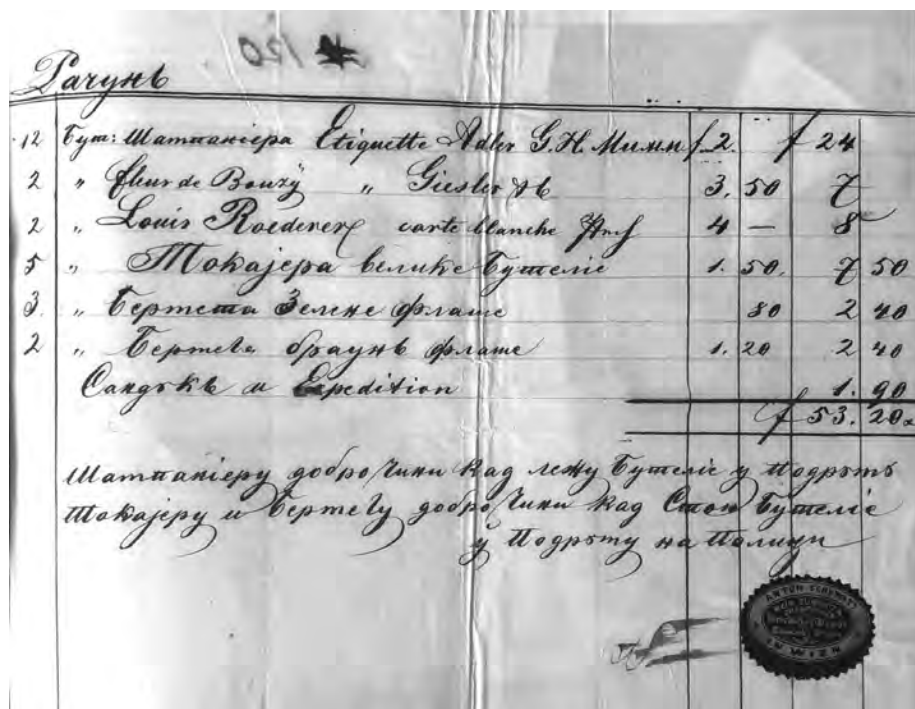 Рачунь
12 Бут: Шампаніера Etiquette Adler G. H. Мumm f 2. f 24
2 " fleur de Bouzÿ " Giesler 3. 50 7
2 " Louis Roederer carte blanche 4 — 8
5 " Токајера велике бутеліе 1. 50. 7 50
3. " Бермета Зелене флаше 80 2 40
2 " Бермета браунь флаше 1. 20 2 40
Сандъкъ и Expedition 1. 90
f 53. 20
Шампаніеру добро чини кад лежу бутеліе у Подруму
Токајеру и Бермету добро чини кад Стои бутеліе
у Подруму на Полици
ANTON SCHEMATT
IN WIEN